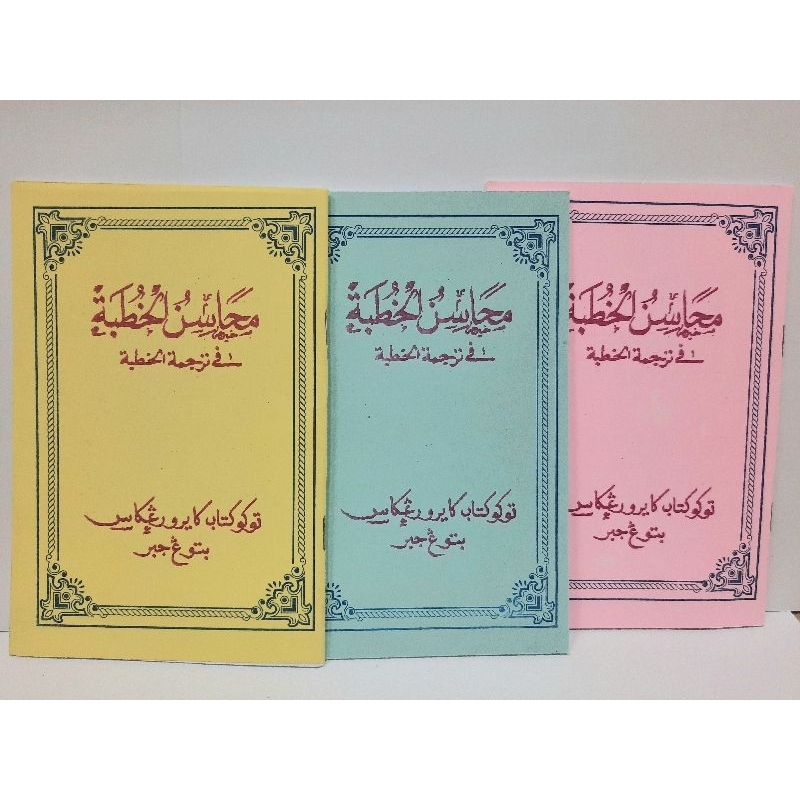 مَحَاسِنُ الْخُطْبَةْ
في ترجمة الخطبة
توكو كتاب كايرو رڠكاس
بتوڠ جبر
مَحَاسِنُ الْخُطْبَةْ
في ترجمة الخطبة
توكو كتاب كايرو رڠكاس
بتوڠ جبر
مَحَاسِنُ الْخُطْبَةْ
في ترجمة الخطبة
توكو كتاب كايرو رڠكاس
بتوڠ جبر